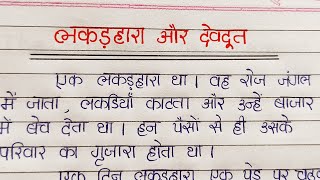 लकड़हारा और देवदूत
एक लकड़हारा था। वह रोज जंगल
में जाता, लकडियाँ काटता और उन्हें बाजार
में बेच देता था। इन पैसों से ही उसके
परिवार का गुजारा होता था।
एक दिन लकड़हारा एक पेड़ पर